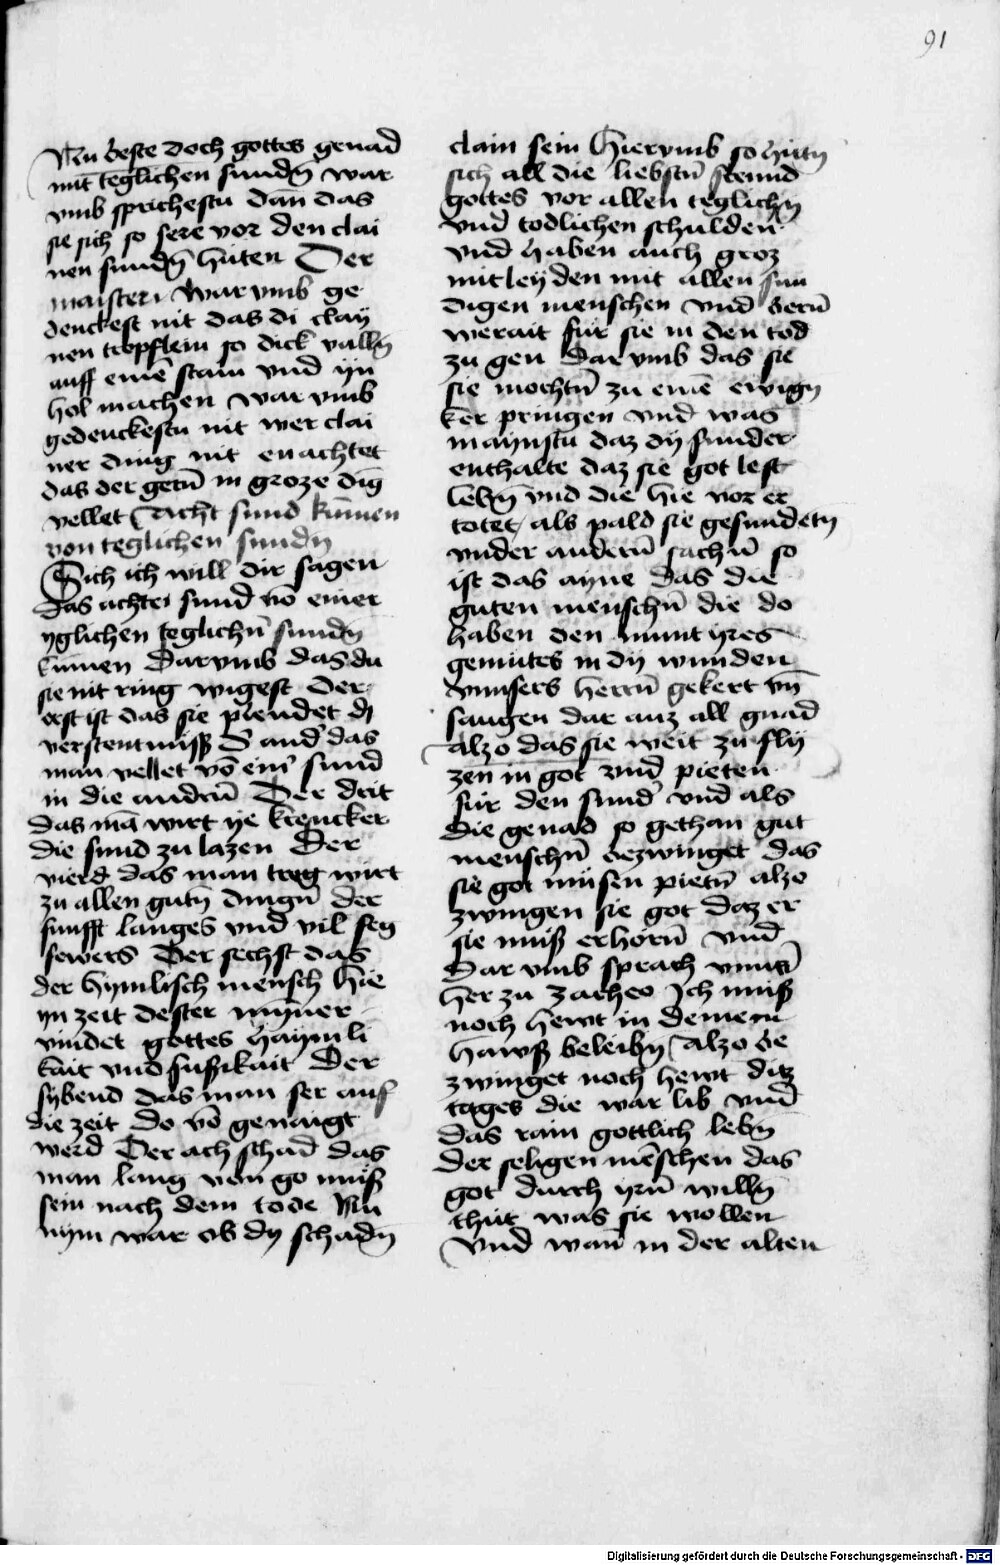 91
Nu beste doch gottes genad
mit teglichen sundn̄ war
vmb sprichestu dan das
sie sich so sere vor den clai
nen sundn̄ hüten Der
maister war vmb ge
denckest nit das di clay
nen tropflein so dick valln̄
auff eine stain vnd yn
hol machen war vmb
gedenckestu nit wer clai
ner ding nit enachtet
das der getn̄ in groze dig
vellet Acht sund kumen
von teglichen sundn
Sich ich will dir sagen
das achtei sund vo einer
yglichen teglichn̄ sundn
kumen Darvmb das du
sie nit ring wigest der
erst ist das sie plendet dy
verstentnüß D' and' das
man vellet vo eim sund
in die andrn̄ Der drit
das ma wirt ye krencker
die sund zu lazen Der
vierd das man treg wirt
zu allen gutn̄ dingn̄ der
funfft langes vnd vil feg
fewers Der sechst das
der hymlisch mensch hie
yn zeit dester mynner
vindet gottes haymli
kait vnd sußikait Der
sybend das man ser auf
die zeit do vo genaigt
werd Der ach schad das
man lang von go muß
sein nach dem tode Nu
nym war ob dy schadn̄
clain sein Hiervmb so hütn
sich all die liebstn̄ freund
gottes vor allen teglichn
vnd todlichen schulden
vnd haben auch groz
mitleyden mit allen sun
digen menschen vnd bern̄
werait für sie in den tod
zu gen Dar vmb das sie
sie mochtn̄ zu eine ewign
ker pringen vnd was
maynstu daz dy sunder
enthalte daz sie got lest
lebn̄ vnd die hie vor er
totet als pald sie gesundetn
vnder andern̄ sachn̄ so
ist das ayne das die
guten menschn̄ die do
haben den munt yres
gemütes in dy wunden
vnnsers herrn̄ gekert vn̄
saugen dar auz all gnad
Alzo das sie weit zu fly
zen in got vnd pieten
für den sund' vnd als
die genad so gethan gut
menschn̄ bezwinget das
sie got müsen pietn̄ alzo
zwingen sie got daz er
sie muß erhörn̄ vnd
Dar vmb sprach vnns'
her zu zacheo Ich muß
noch hewt in deinem
hawß beleibn Alzo be
zwinget noch hewt ditz
tages die war lib vnd
das rain gottlich lebn
der seligen menschen das
got durch yrn̄ willn̄
thut was sie wollen
Vnd wan̄ in der alten
Digitalisierung gefördert durch die Deutsche Forschungsgemeinschaft - DFG